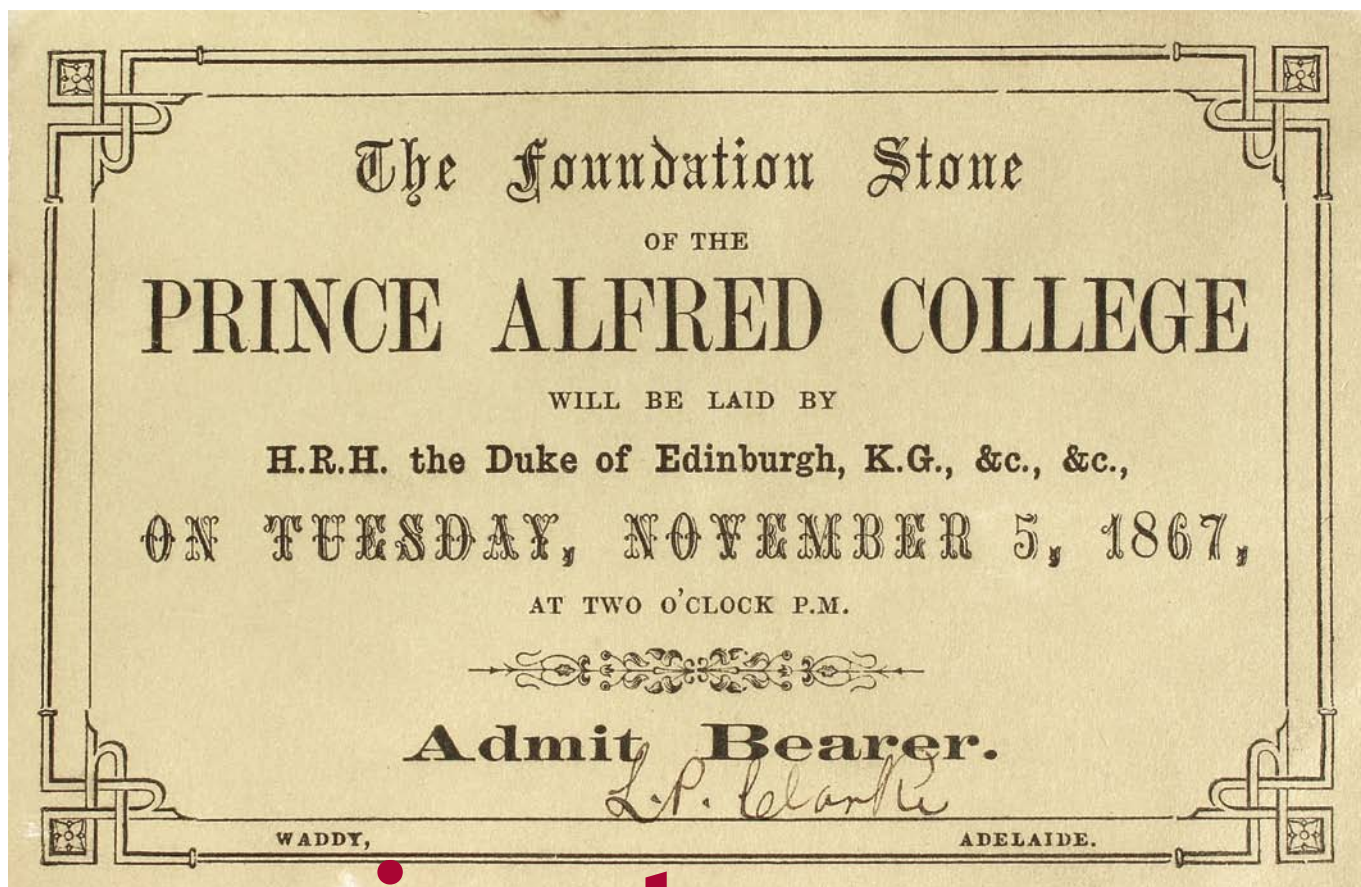 The Foundation Stone
OF THE
PRINCE ALFRED COLLEGE
WILL BE LAID BY
H.R.H. the Duke of Edinburgh, K.G., &c., &c.,
ON TUESDAY, NOVEMBER 5, 1867,
AT TWO O'CLOCK P.M.
Admit Bearer.
L.P. Clarke
WADDY, ADELAIDE.